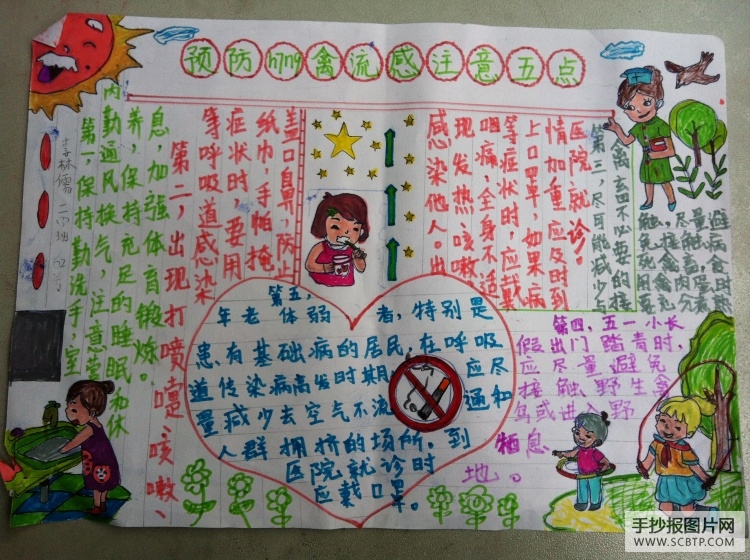 预防h7n9禽流感注意五点
第一,保持勤洗手,室
内勤通风换气,注意营
养,保持充足的睡眠和休
息,加强体育锻炼。
第二,出现打喷嚏、咳嗽、
等呼吸道感染
症状时,要用
纸巾、手帕掩
盖口鼻,防止
感染他人。出
现发热、咳嗽、
咽痛、全身不适
等症状时,应戴
上口罩,如果病
情加重,应及时到
医院就诊。
第三,尽可能减少与
禽畜不必要的接
触,尽量避
免接触病
死禽畜,食
用禽肉蛋时
要充分煮
第四,五一小长
假出门踏青时,
应尽量避免
接触野生禽
鸟或进入野
栖息
地。
第五,
年老体弱者,特别是
患有基础病的居民,在呼吸
道传染病高发时期,应尽
量减少去空气不流通和
人群拥挤的场所,到
医院就诊时
应戴口罩。
手抄报图片网
WWW.SCBTP.COM